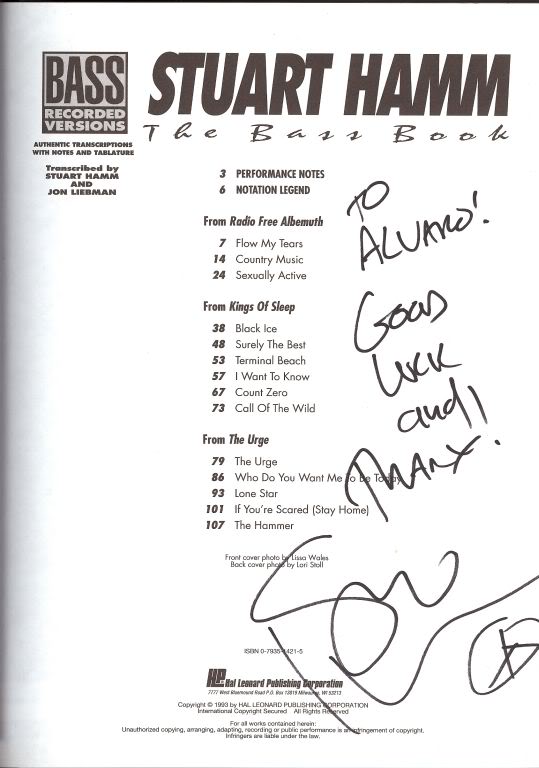 BASS
RECORDED
VERSIONS
AUTHENTIC TRANSCRIPTIONS
WITH NOTES AND TABLATURE
Transcribed by
STUART HAMM
AND
JON LIEBMAN
STUART HAMM
The Bass Book
3 PERFORMANCE NOTES
6 NOTATION LEGEND
From Radio Free Albemuth
7 Flow My Tears
14 Country Music
24 Sexually Active
From Kings Of Sleep
38 Black Ice
48 Surely The Best
53 Terminal Beach
57 I Want To Know
67 Count Zero
73 Call Of The Wild
From The Urge
79 The Urge
86 Who Do You Want Me To Be Today
93 Lone Star
101 If You're Scared (Stay Home)
107 The Hammer
TO
ALVARO!
GOOD
LUCK
and
THANX!
Front cover photo by Lissa Wales
Back cover photo by Lori Stoll
ISBN 0-7935-1421-5
HL Hal Leonard Publishing Corporation
7777 West Bluemound Road P.O. Box 13819 Milwaukee, WI 53213
Copyright © 1993 by HAL LEONARD PUBLISHING CORPORATION
International Copyright Secured All Rights Reserved
For all works contained herein:
Unauthorized copying, arranging, adapting, recording or public performance is an infringement of copyright.
Infringers are liable under the law.